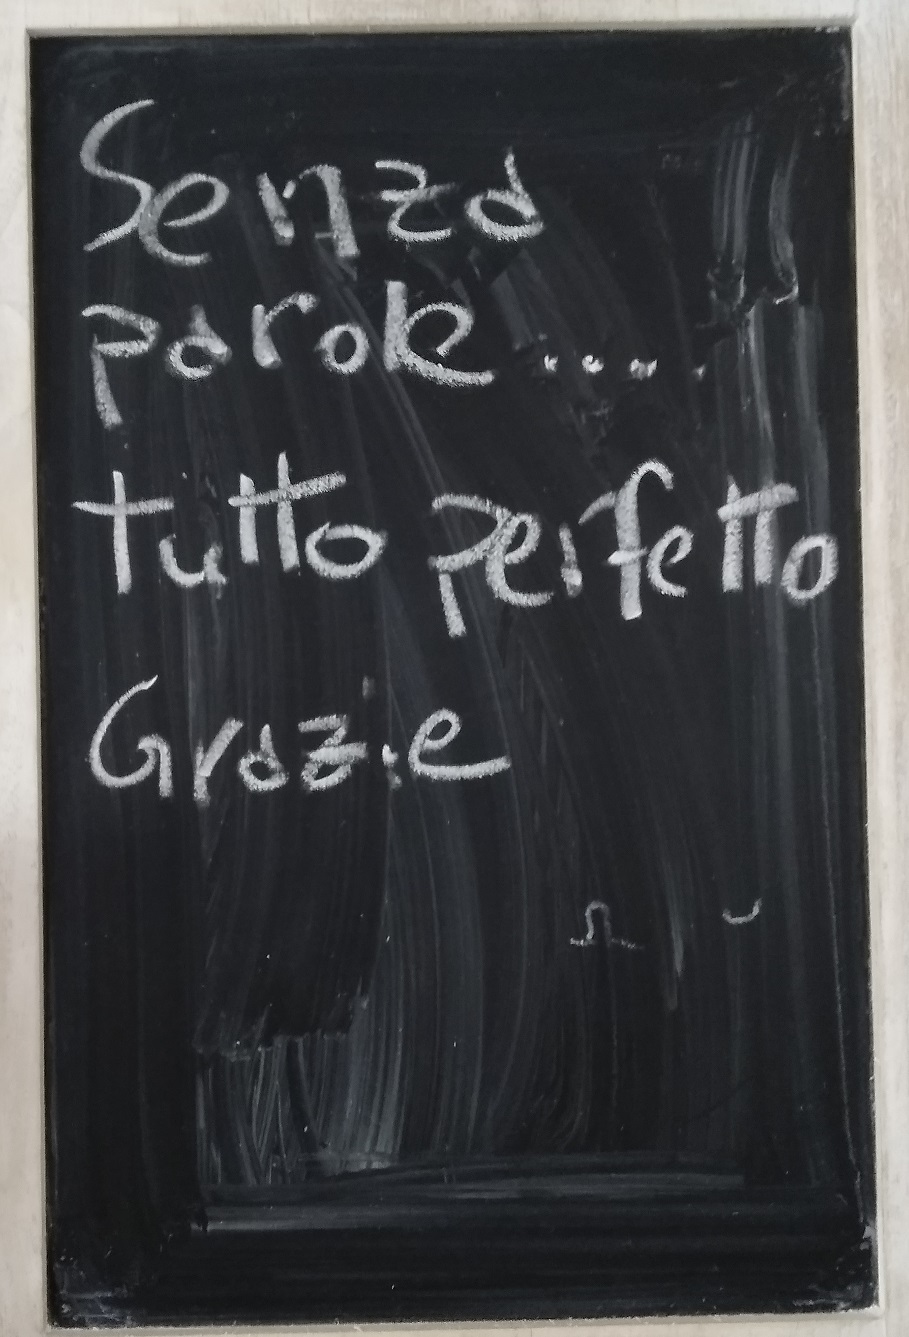 Senza
parole....
tutto perfetto
Grazie